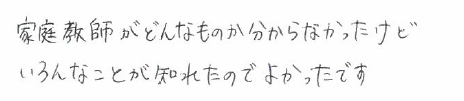 家庭教師がどんなものか分からなかったけど
いろんなことが知れたのでよかったです